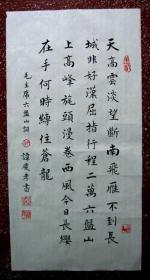 天高雲淡望斷南飛雁不到長
城非好漢屈指行程二萬六盤山
上高峰旄頭漫卷西風今日長纓
在手何時縛住蒼龍
毛主席六盤山詞 書